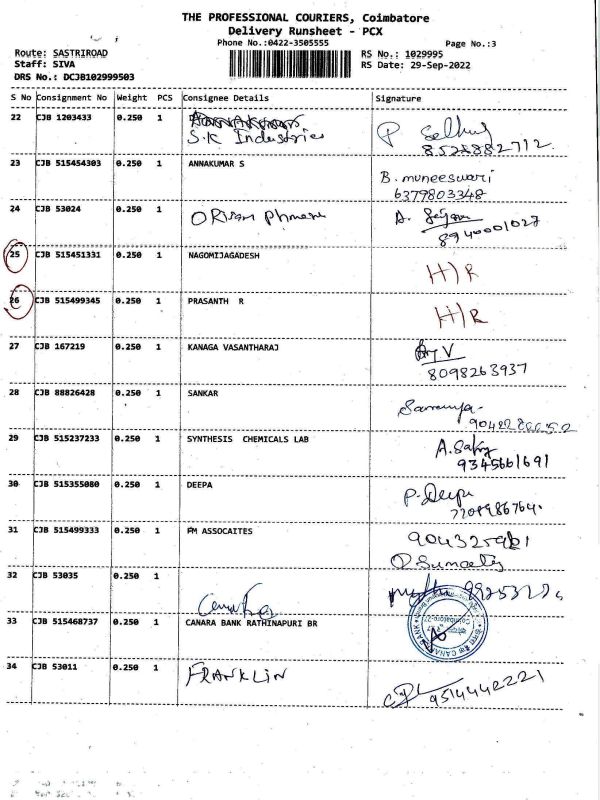 THE PROFESSIONAL COURIERS, Coimbatore
Delivery Runsheet - PCX
Phone No.:0422-3505555
Page No.:3
Route: SASTRIROAD
Staff: SIVA
DRS No.: DCJB102999503
RS No.: 1029995
RS Date: 29-Sep-2022
S No Consignment No Weight PCS Consignee Details Signature
22 CJB 1203433 0.250 1 S.K Industries P
8528882712
23 CJB 515454303 0.250 1 ANNAKUMAR S B. muneeswari
6379803348
24 CJB 53024 0.250 1 A.
8940001027
25 CJB 515451331 0.250 1 NAGOMIJAGADESH H)R
26 CJB 515499345 0.250 1 PRASANTH R H)R
27 CJB 167219 0.250 1 KANAGA VASANTHARAJ
8098263937
28 CJB 88826428 0.250 1 SANKAR
29 CJB 515237233 0.250 1 SYNTHESIS CHEMICALS LAB A.
9345661691
30 CJB 515355080 0.250 1 DEEPA P. Deepa
31 CJB 515499333 0.250 1 FM ASSOCAITES
32 CJB 53035 0.250 1
33 CJB 515468737 0.250 1 CANARA BANK RATHINAPURI BR
34 CJB 53011 0.250 1 FRANKLIN
9514442221